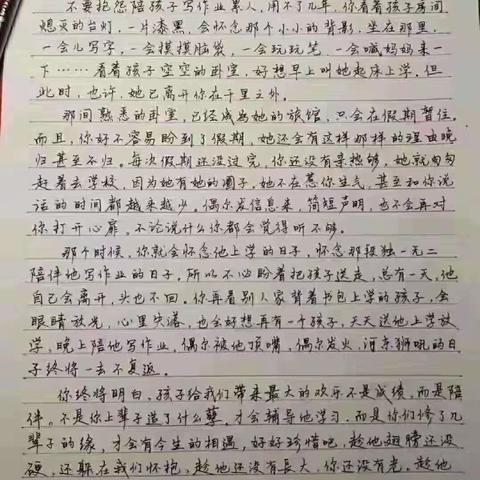 不要抱怨陪孩子写作业累人，用不了几年，你看着孩子房间
熄灭的台灯，一片漆黑，会怀念那个小小的背影，坐在那里，
一会儿写字，一会摸摸脑袋，一会玩玩笔，一会喊妈妈来一
下……看着孩子空空的卧室，好想早上叫她起床上学。但
此时，也许，她已离开你在千里之外。
那间熟悉的卧室，已经成为她的旅馆，只会在假期暂住。
而且，你好不容易盼到了假期，她还会有这样那样的理由晚
归甚至不归。每次假期还没过完，你还没有亲热够，她就匆匆
赶着去学校，因为她有她的圈子，她不在惹你生气，甚至和你说
话的时间都越来越少。偶尔发信息来，简短声明，也不会再对
你打开心扉。不论说什么你都会觉得听不够。
那个时候，你就会怀念他上学的日子，怀念那段独一无二
陪伴他写作业的日子，所以不必盼着把孩子送走，总有一天，他
自己会离开，头也不回。你再看别人家背着书包上学的孩子，会
眼睛放光，心里失落，也会好想再有一个孩子，天天送他上学放
学，晚上陪他写作业，偶尔被他顶嘴，偶尔发火，河东狮吼的日
子终将一去不复返。
你终将明白，孩子给我们带来最大的欢乐不是成绩，而是陪
伴。不是你上辈子造了什么孽，才会辅导他学习，而是你们修了几
辈子的缘，才会有今生的相遇，好好珍惜吧，趁他翅膀还没
硬，还躲在我们怀抱，趁他还没有长大，你还没有老。趁他